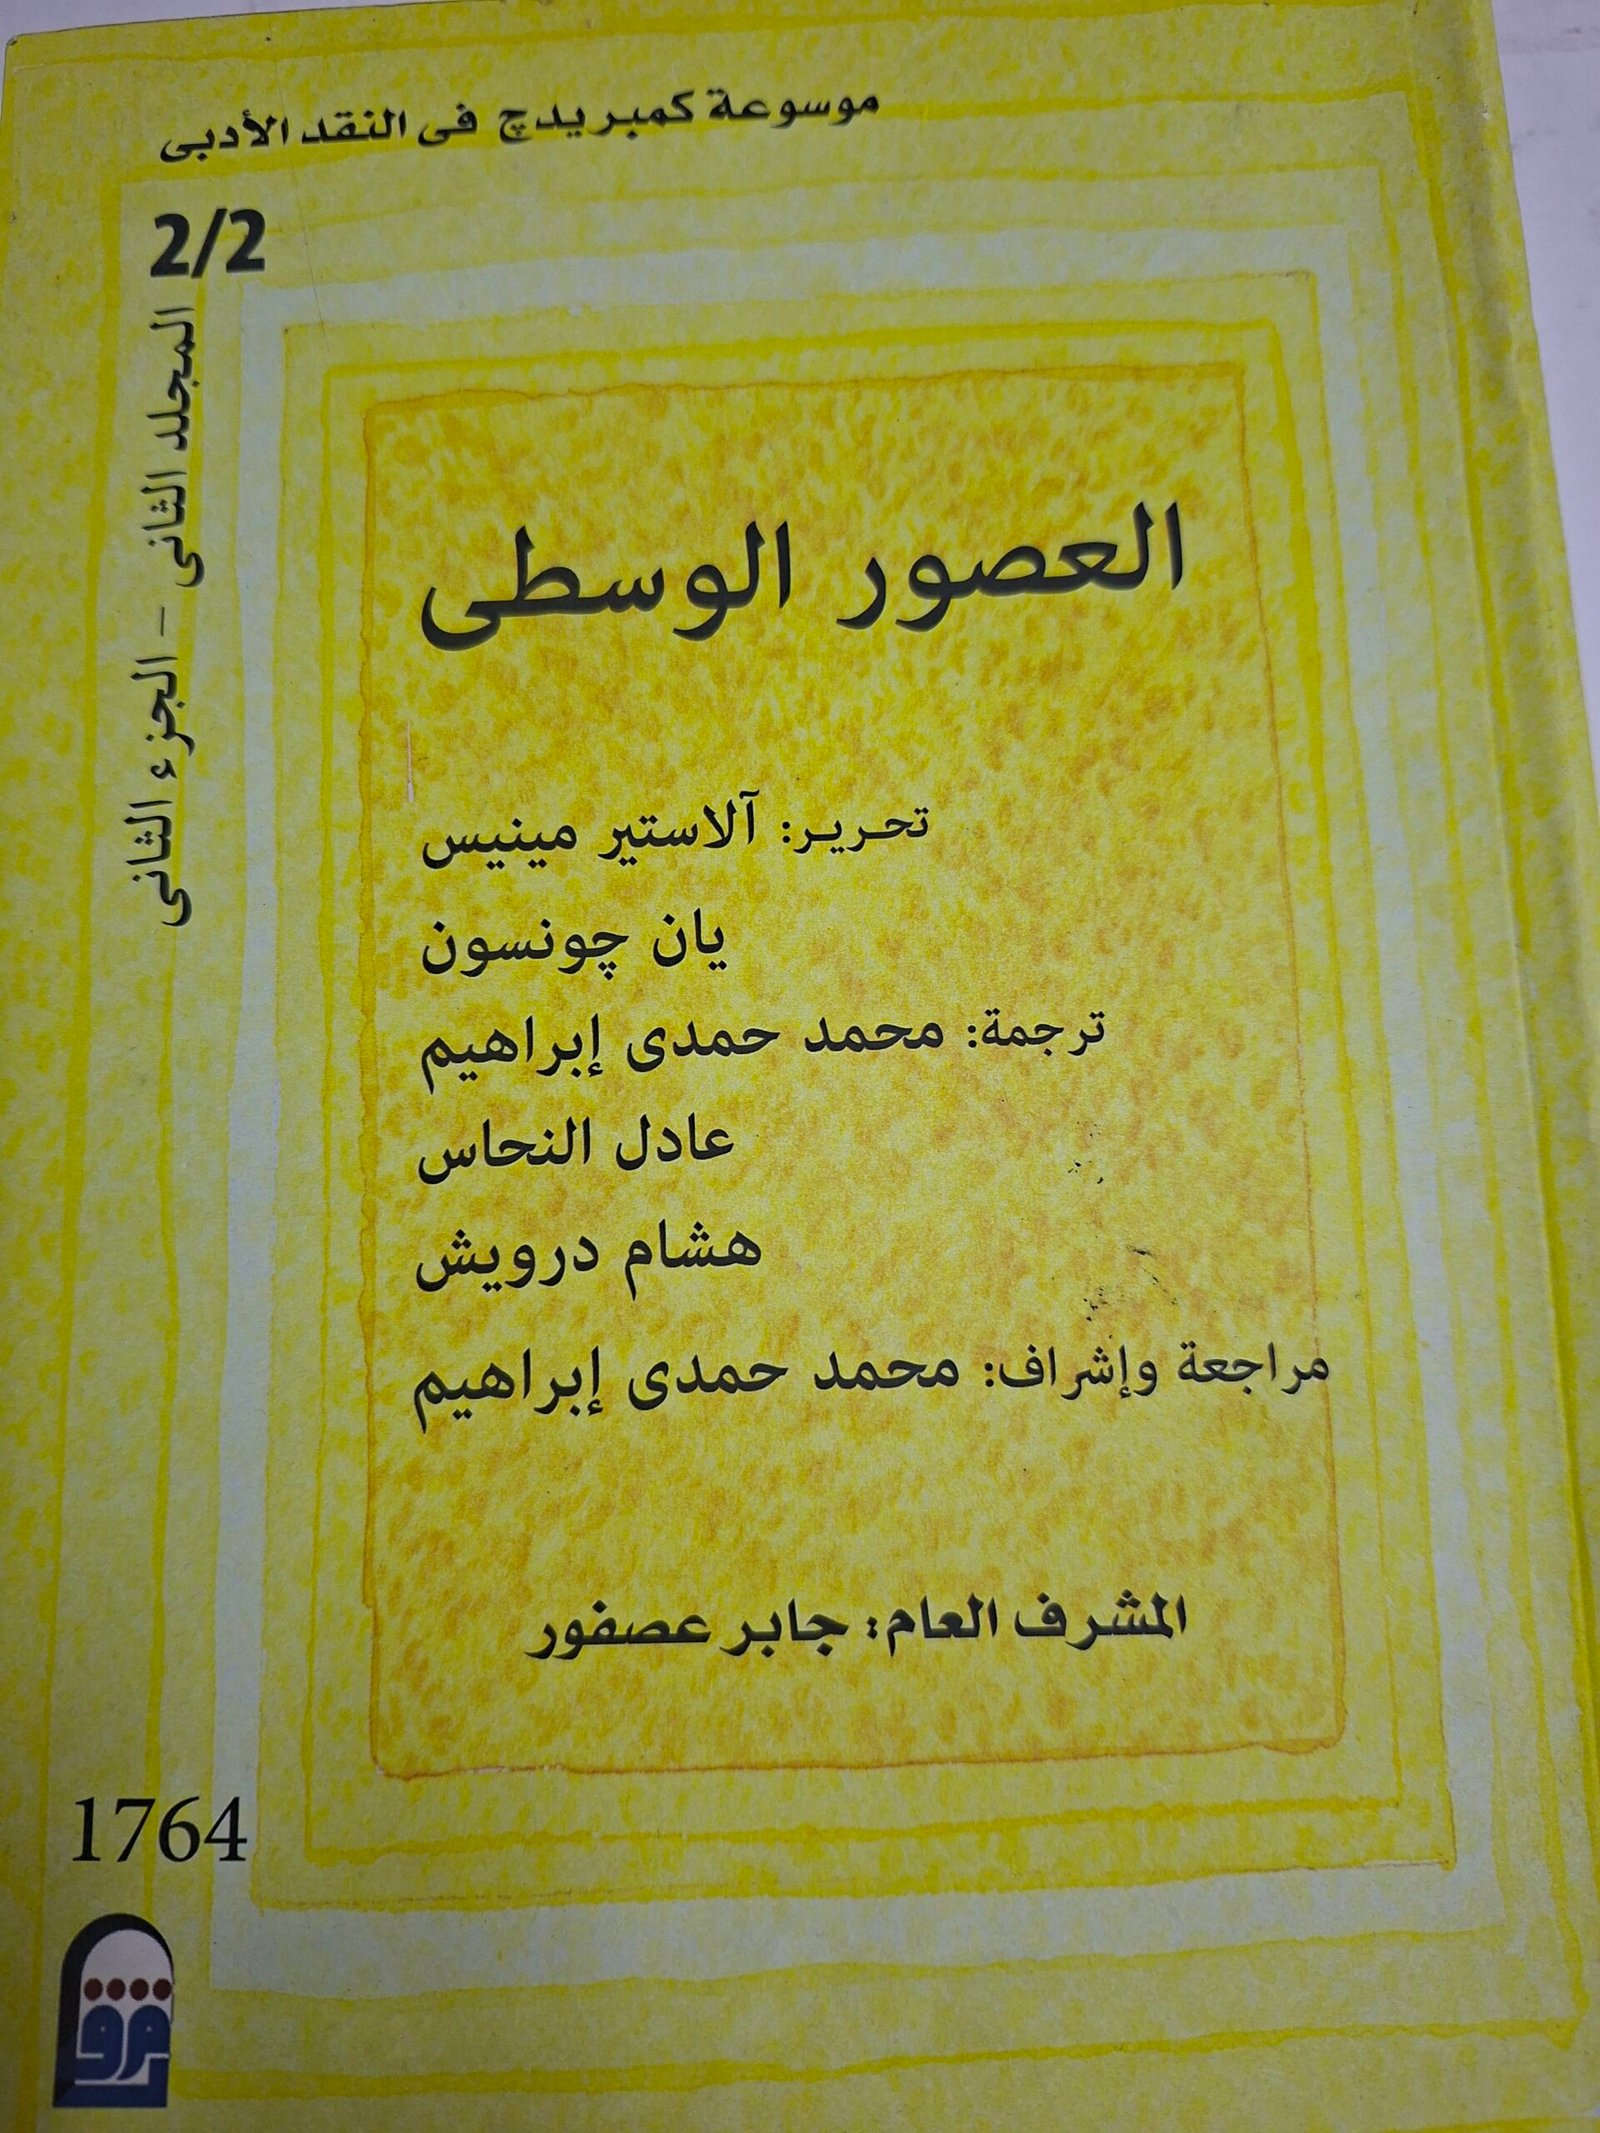 موسوعة كمبريدچ فى النقد الأدبى
2/2
المجلد الثانى – الجزء الثانى
العصور الوسطى
تحرير: آلاستير مينيس
يان چونسون
ترجمة: محمد حمدى إبراهيم
عادل النحاس
هشام درويش
مراجعة وإشراف: محمد حمدى إبراهيم
المشرف العام: جابر عصفور
1764